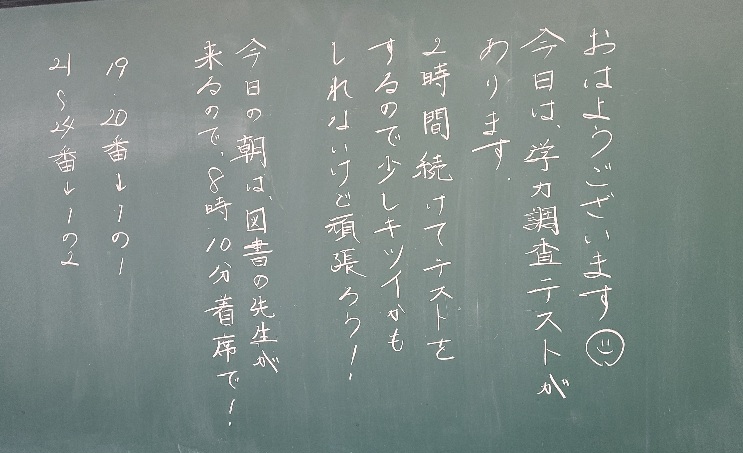 おはようございます
今日は、学力調査テストが
あります。
2時間続けてテストを
するので少しキツイかも
しれないけど頑張ろう！
今日の朝は、図書の先生が
来るので、8時10分着席で！
19・20番→1の1
21〜24番→1の2